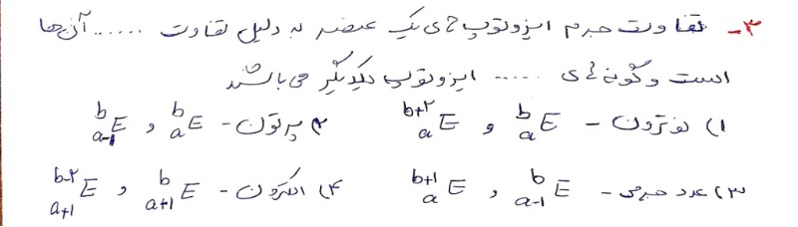 ۳- تفاوت جرم ایزوتوپ های یک عنصر به دلیل تفاوت ...... آن ها
است و گونه های ..... ایزوتوپ یکدیگر می باشند
۱) نوترون - ᵇₐE و ᵇ⁺²ₐE ۲) پروتون - ᵇₐE و ᵇₐ₋₁E
۳) عدد جرمی - ᵇₐ₋₁E و ᵇ⁺¹ₐE ۴) الکترون - ᵇₐ₊₁E و ᵇ⁻²ₐ₊₁E